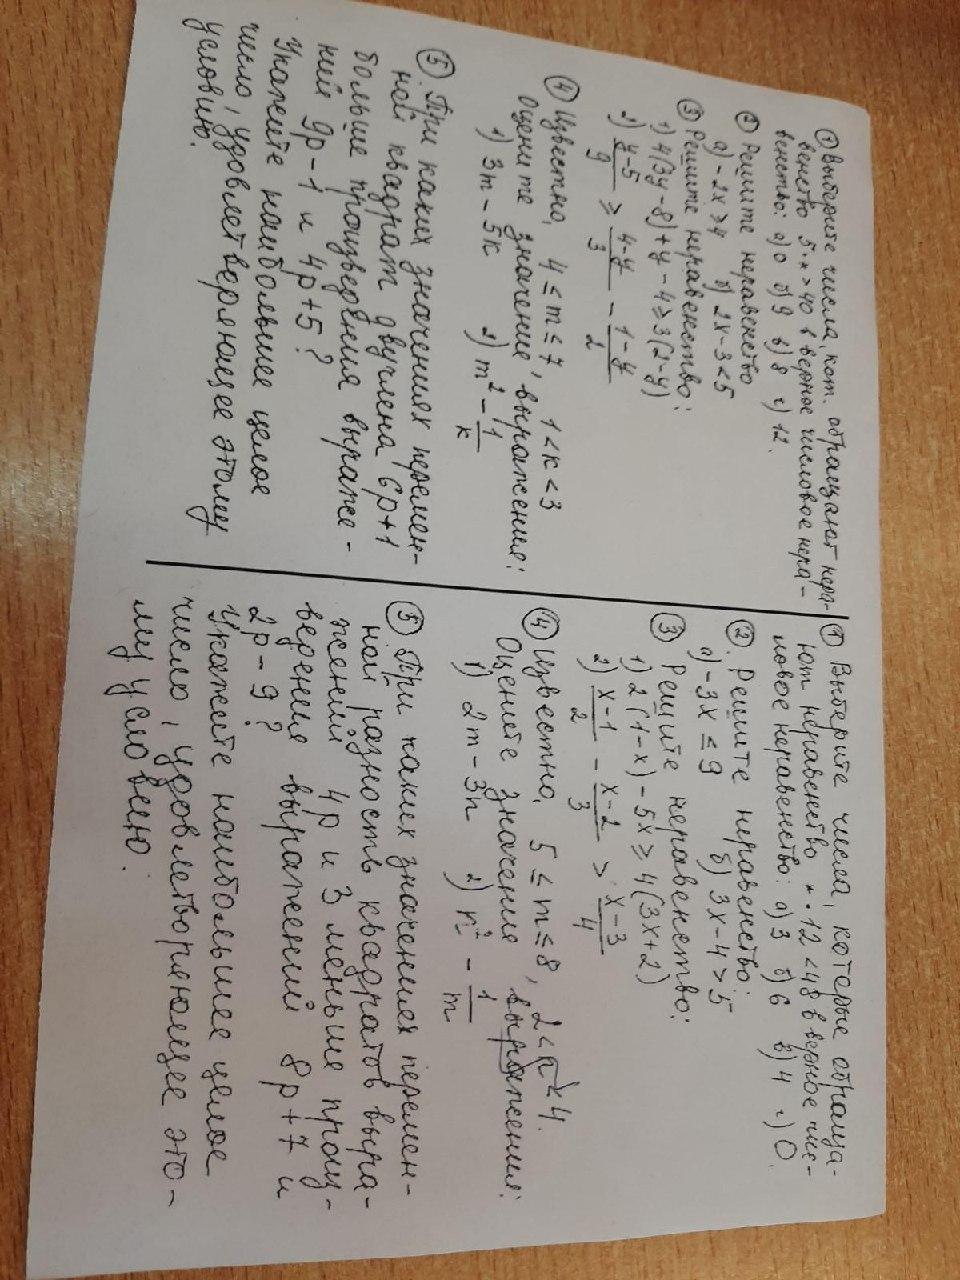 ① Выберите числа, кот. обращают нера-
венство 5·* > 40 в верное числовое нера-
венство: а) 0 б) 9 в) 8 г) 12.
② Решите неравенство
а) -2x ≥ 4 б) 2x-3<5
③ Решите неравенство:
1) 4(3y-8)+y-4≥3(2-y)
2) y-5/9 ≥ 4-y/3 - 1-y/2
④ Известно, 4≤m≤7, 1<k<3
Оцените значение выражения:
1) 3m-5k 2) m²-1/k
⑤ При каких значениях перемен-
ной квадрат двучлена 6p+1
больше произведения выраже-
ний 9p-1 и 4p+5?
Укажите наибольшее целое
число, удовлетверяющее этому
условию.
① Выберите числа, которые обраща-
ют неравенство *·12<48 в верное чис-
ловое неравенство: а) 3 б) 6 в) 4 г) 0.
② Решите неравенство:
а) -3x ≤ 9 б) 3x-4>5
③ Решите неравенство:
1) 2(1-x)-5x≥4(3x+2)
2) x-1/2 - x-2/3 > x-3/4
④ Известно, 5≤m≤8, 2<n<4.
Оцените значение выражения:
1) 2m-3n 2) n²-1/m
⑤ При каких значениях перемен-
ной разность квадратов выра-
жений 4p и 3 меньше произ-
ведения выражений 8p+7 и
2p-9?
Укажите наибольшее целое
число, удовлетворяющее это-
му условию.